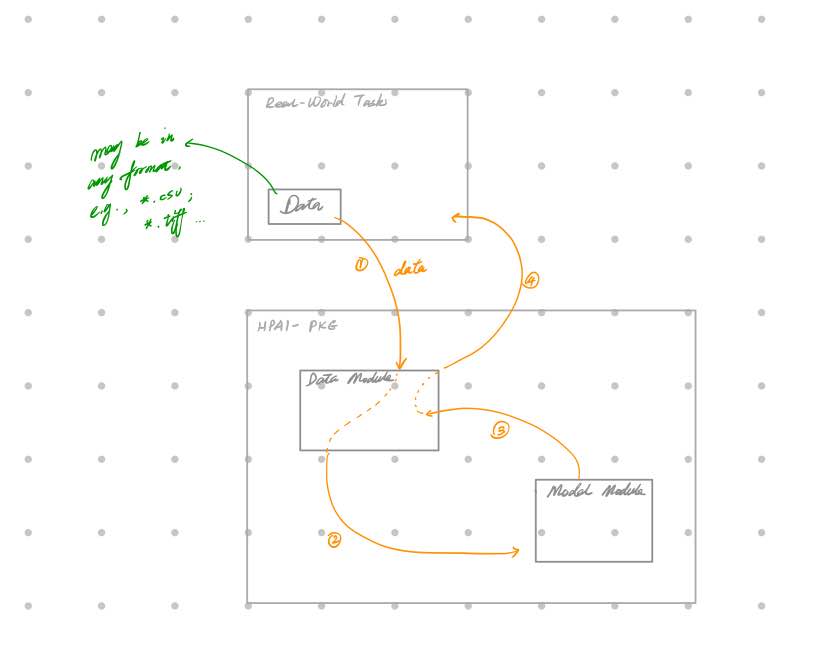 Real-World Task
may be in
any format,
e.g., *.csv;
*.tiff ...
Data
①
data
④
HPAI-PKG
Data Module
③
Model Module
②